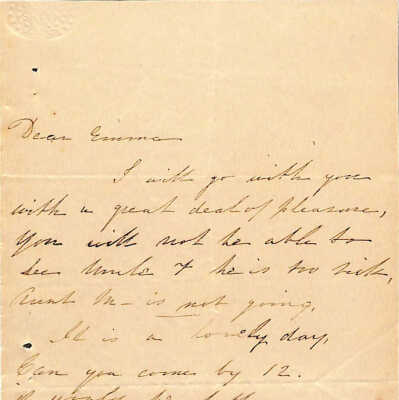 Dear Emma
I will go with you
with a great deal of pleasure,
You will not be able to
see Uncle & he is too sick,
Aunt M- is not going.
It is a lovely day,
Can you come by 12.
I